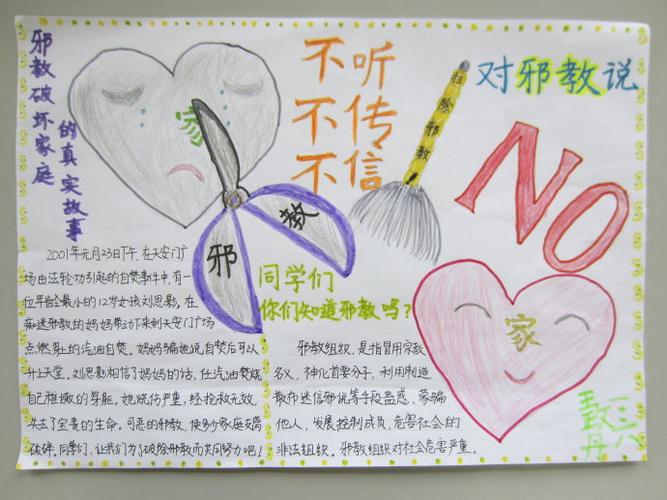 邪教破坏家庭
的真实故事
家
邪
教
不听
不传
不信
扫除邪教!
对邪教说
NO
2001年元月23日下午，在天安门广
场由法轮功引起的自焚事件中，有一
位年龄最小的12岁女孩刘思影，在
痴迷邪教的妈妈带动下来到天安门广场
点燃身上的汽油自焚。妈妈骗她说自焚后可以
升上天堂。刘思影相信了妈妈的话，任汽油焚烧
自己稚嫩的身躯，她烧伤严重，经抢救无效，
失去了宝贵的生命。可恶的邪教，使多少家庭支离
破碎，同学们，让我们为了破除邪教而共同努力吧！
同学们
你们知道邪教吗？
邪教组织，是指冒用宗教
名义，神化首要分子，利用制造
散布迷信邪说等手段蛊惑、蒙骗
他人，发展控制成员，危害社会的
非法组织。邪教组织对社会危害严重。
家
三八